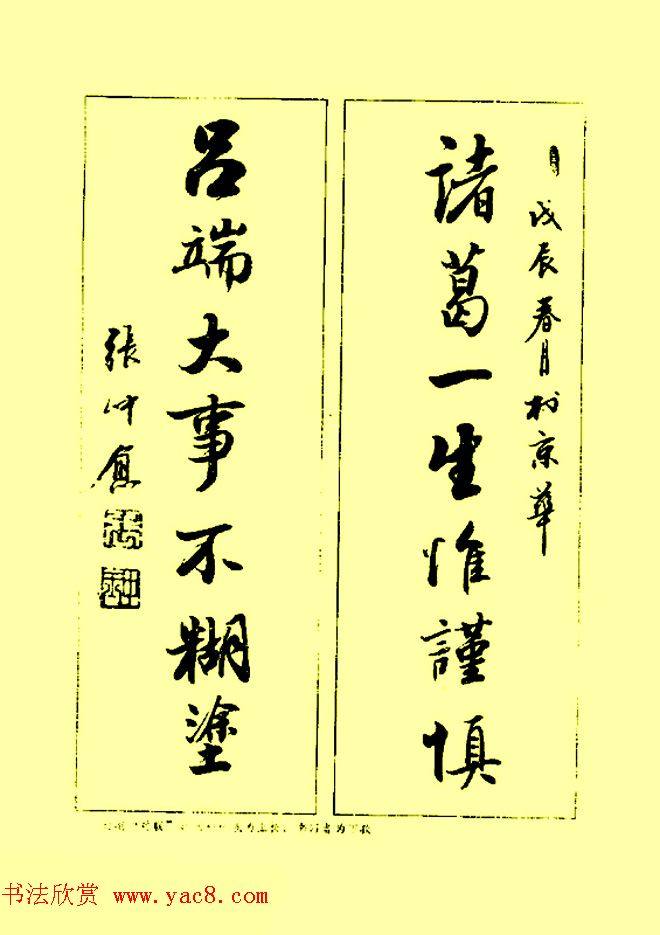 戊辰春月於京華
諸葛一生惟謹慎
呂端大事不糊塗
張仲愈
书法欣赏 www.yac8.com